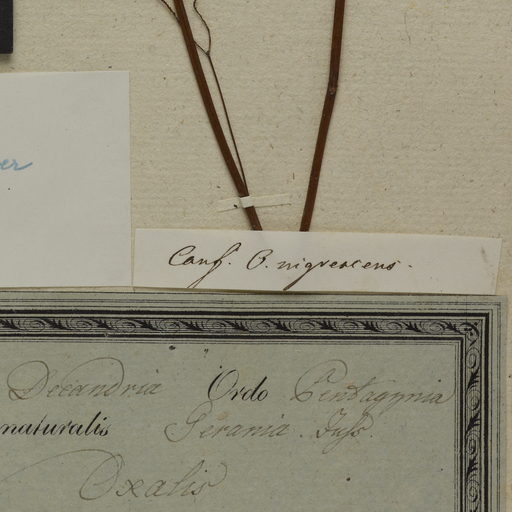 er
Conf. O. nigrescens.
Decandria Ordo Pentagynia
naturalis Gerania. Juss.
Oxalis